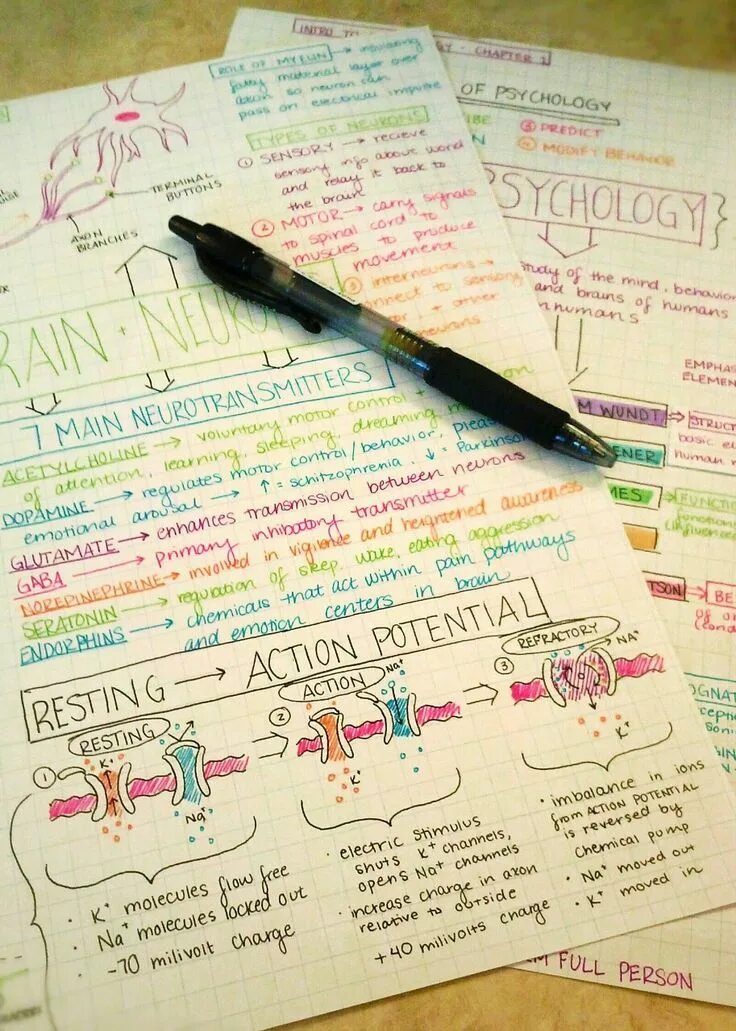 ROLE OF MYELIN → insulating
fatty material layer over
axon so neuron can
pass on electrical impulse
TYPES OF NEURONS
① SENSORY → recieve
sensory info above world
and relay it back to
the brain
② MOTOR → carry signals
to spinal cord to
muscles to produce
movement
③ interneurons →
connect to sensory
+ other
neurons
TERMINAL
BUTTONS
AXON
BRANCHES
7 MAIN NEUROTRANSMITTERS
ACETYLCHOLINE → voluntary motor control +
of attention, learning, sleeping, dreaming,
DOPAMINE → regulates motor control/behavior,
emotional arousal → ↑ = schitzophrenia, ↓ =
GLUTAMATE → enhances transmission between neurons
GABA → primary inhibitory transmitter
NOREPINEPHRINE → involved in vigilence and heightened awareness
SERATONIN → regulation of sleep, wake, eating, aggression
ENDORPHINS → chemicals that act within pain pathways
and emotion centers in brain
RESTING → ACTION POTENTIAL
① RESTING
K⁺
Na⁺
· K⁺ molecules flow free
· Na⁺ molecules locked out
· -70 milivolt charge
② ACTION
Na⁺
K⁺
· electric stimulus
shuts K⁺ channels,
opens Na⁺ channels
· increase charge in axon
relative to outside
+40 milivolts charge
③ REFRACTORY
Na⁺
K⁺
· imbalance in ions
from ACTION POTENTIAL
is reversed by
chemical pump
· Na⁺ moved out
· K⁺ moved in
INTRO TO
CHAPTER 1
OF PSYCHOLOGY
③ PREDICT
④ MODIFY BEHAVIOR
PSYCHOLOGY
study of the mind, behavior
and brains of humans
humans
WUNDT
FULL PERSON